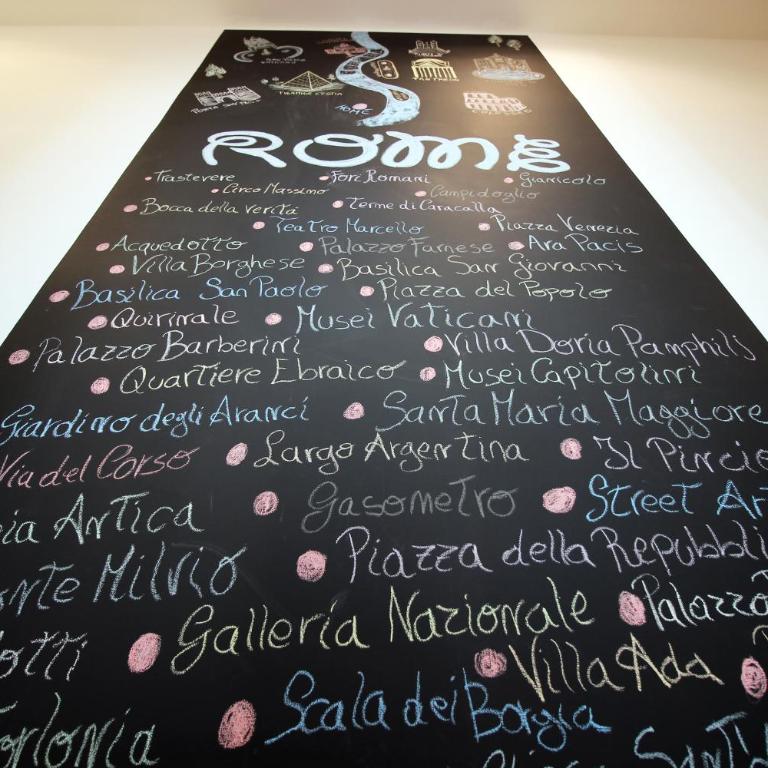 PIRAMIDE CESTIA
ROME
ROME
Trastevere Fori Romani Gianicolo
Circo Massimo Campidoglio
Bocca della verità Terme di Caracalla
Teatro Marcello Piazza Venezia
Acquedotto Palazzo Farnese Ara Pacis
Villa Borghese Basilica San Giovanni
Basilica San Paolo Piazza del Popolo
Quirinale Musei Vaticani
Palazzo Barberini Villa Doria Pamphilj
Quartiere Ebraico Musei Capitolini
Giardino degli Aranci Santa Maria Maggiore
Via del Corso Largo Argentina Il Pincio
ia Antica Gasometro Street Ar
nte Milvio Piazza della Repubbli
otti Galleria Nazionale Palazzo
Villa Ada
orlonia Scala dei Borgia
Sant